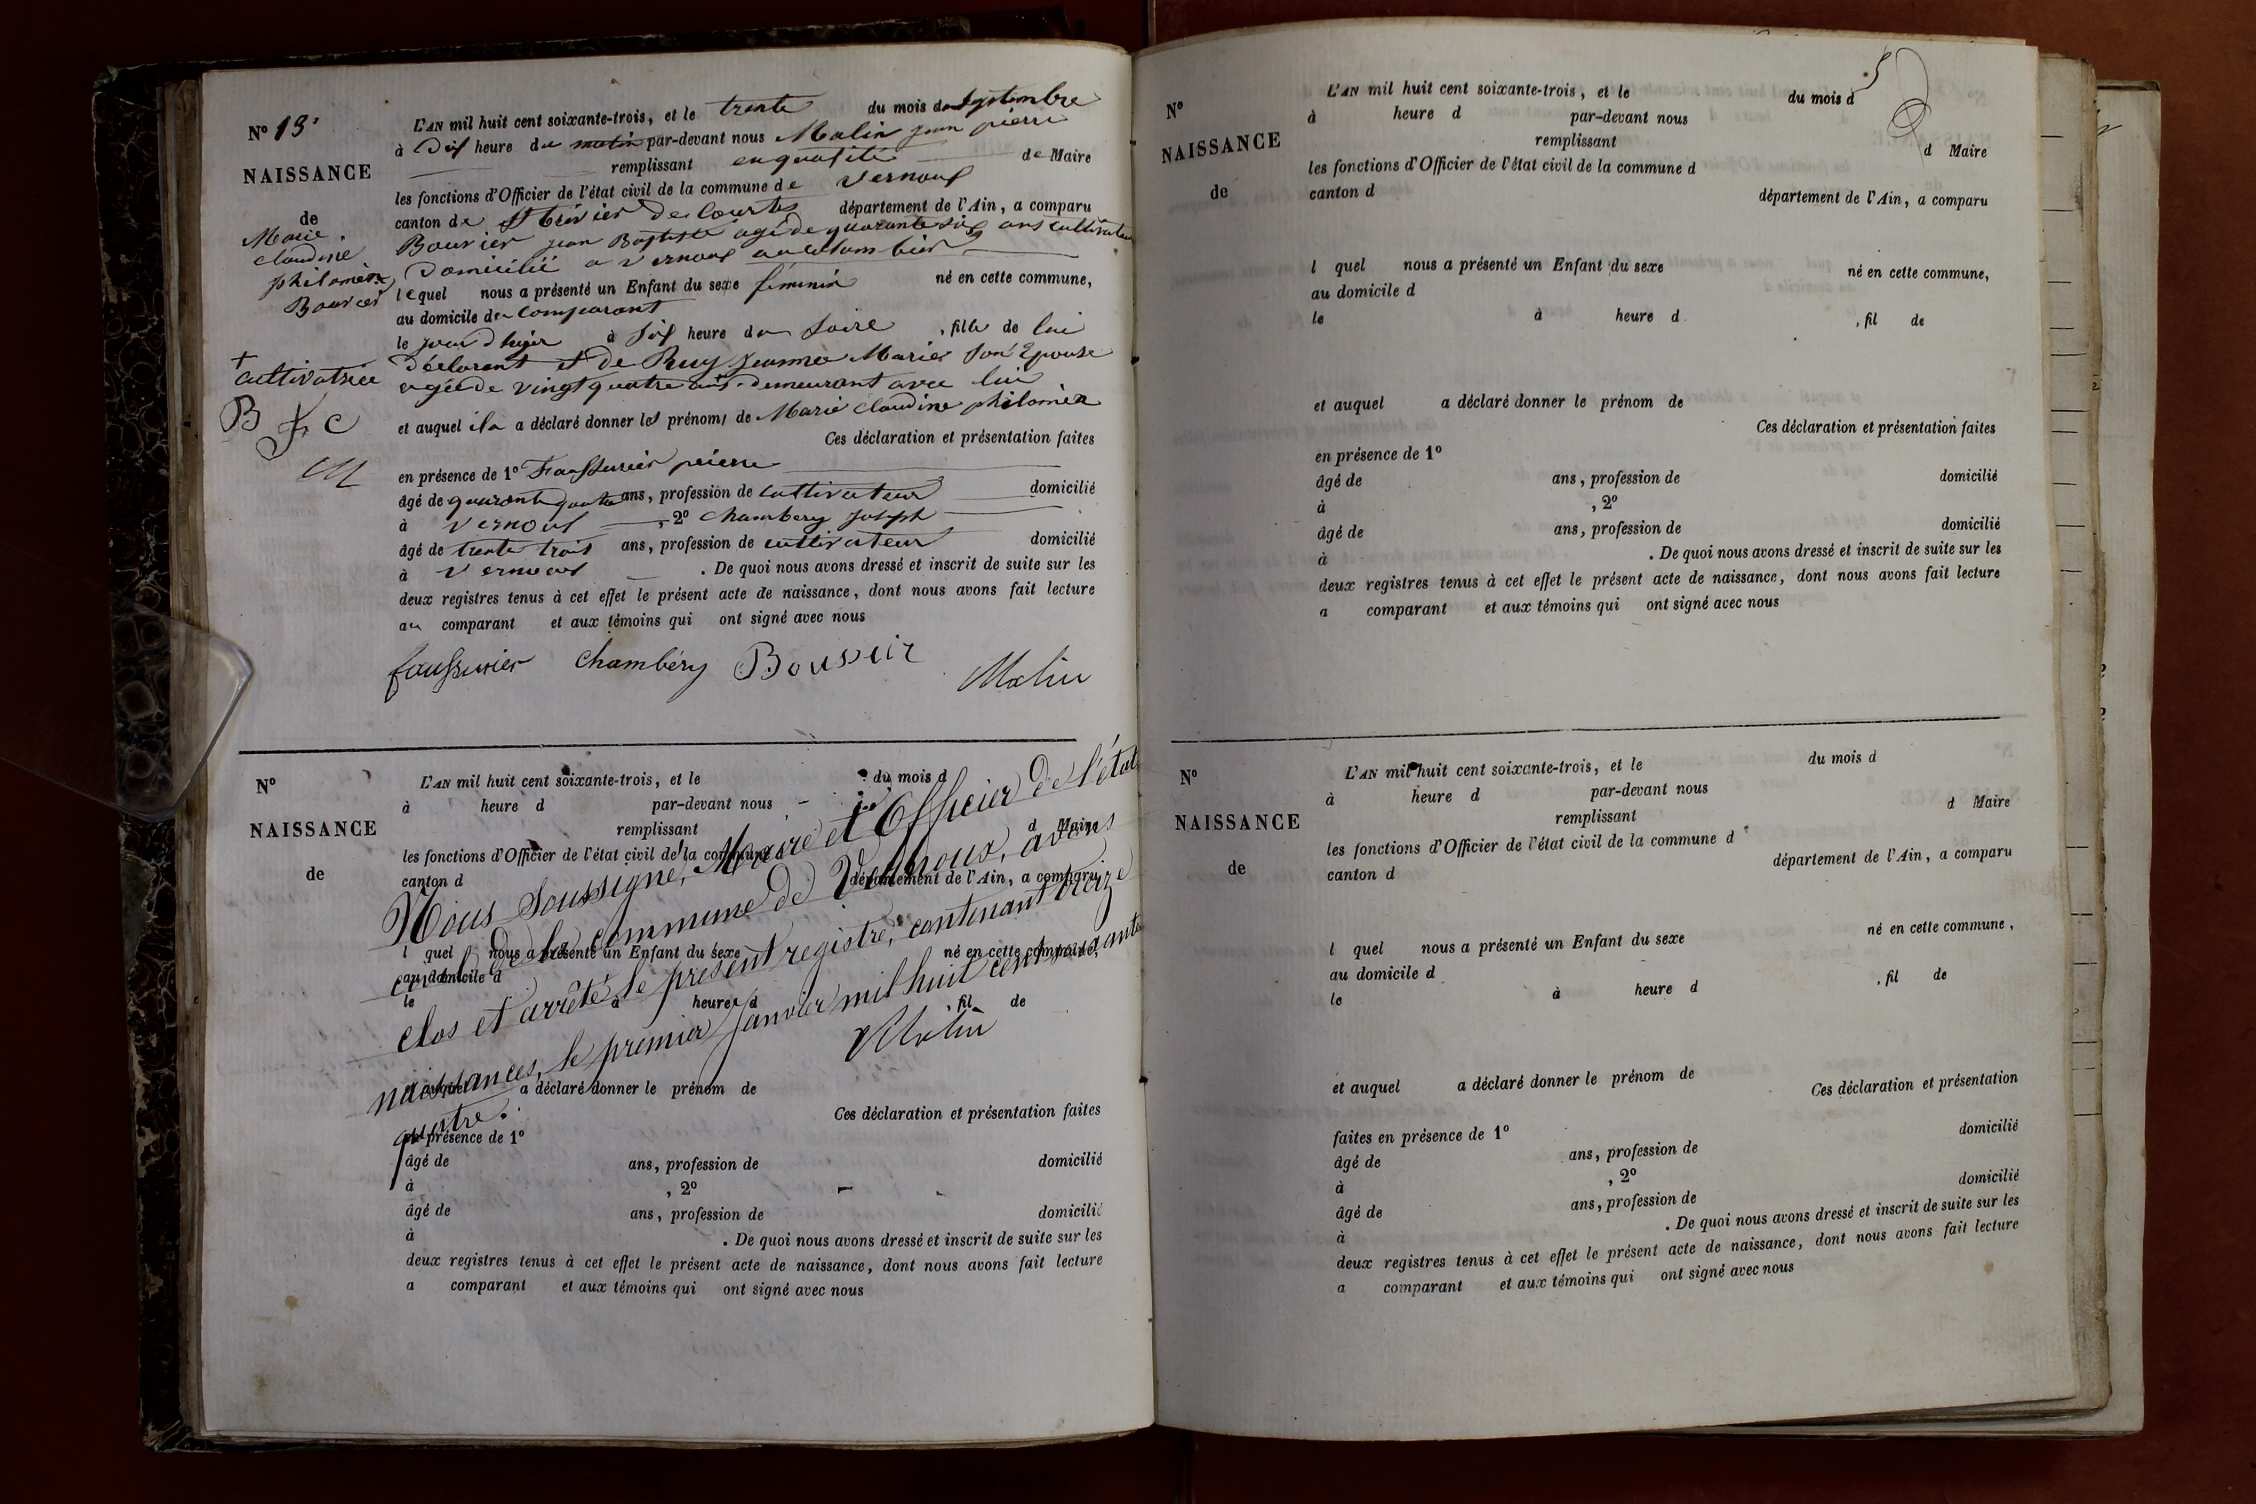 N° 13.
NAISSANCE
de
Marie
claudine
philomène
Bouvier
+
cultivatrice
B f C
M
L'AN mil huit cent soixante-trois, et le trente du mois de septembre
à dix heure du matin par-devant nous Malin jean pierre
remplissant en qualité de Maire
les fonctions d'Officier de l'état civil de la commune de Vernoux
canton de St trivier de Courtes département de l'Ain, a comparu
Bouvier jean Baptiste agé de quarante six ans cultivateur
Domicilié a vernoux au colombier
lequel nous a présenté un Enfant du sexe féminin né en cette commune,
au domicile du comparant
le jour d'hier à six heure du soire , fille de lui
Déclarant et de Ruy jeanne Marie son Epouse
agée de vingt quatre ans demeurant avec lui
et auquel il a a déclaré donner les prénoms de Marie claudine philomèn
Ces déclaration et présentation faites
en présence de 1° Faussurier pierre
âgé de quarante quatre ans, profession de cultivateur domicilié
à vernoux , 2° Chambery joseph
âgé de trente trois ans, profession de cultivateur domicilié
à vernoux . De quoi nous avons dressé et inscrit de suite sur les
deux registres tenus à cet effet le présent acte de naissance, dont nous avons fait lecture
au comparant et aux témoins qui ont signé avec nous
faussurier Chambéry Bouvier
Malin
N°
NAISSANCE
de
L'AN mil huit cent soixante-trois, et le du mois d
à heure d par-devant nous
remplissant d Maire
les fonctions d'Officier de l'état civil de la commune d
canton d département de l'Ain, a comparu
l quel nous a présenté un Enfant du sexe né en cette commune,
au domicile d
le à heure d , fil de
et auquel a déclaré donner le prénom de
Ces déclaration et présentation faites
en présence de 1°
âgé de ans, profession de domicilié
à , 2°
âgé de ans, profession de domicilié
à . De quoi nous avons dressé et inscrit de suite sur les
deux registres tenus à cet effet le présent acte de naissance, dont nous avons fait lecture
a comparant et aux témoins qui ont signé avec nous
Nous soussigné, Maire et Officier de l'état
civil de la commune de Vernoux, avons
clos et arrêté le présent registre, contenant treize
naissances, le premier janvier mil huit cent soixante
quatre.
Malin
5
N°
NAISSANCE
de
L'AN mil huit cent soixante-trois, et le du mois d
à heure d par-devant nous
remplissant d Maire
les fonctions d'Officier de l'état civil de la commune d
canton d département de l'Ain, a comparu
l quel nous a présenté un Enfant du sexe né en cette commune,
au domicile d
le à heure d , fil de
et auquel a déclaré donner le prénom de
Ces déclaration et présentation faites
en présence de 1°
âgé de ans, profession de domicilié
à , 2°
âgé de ans, profession de domicilié
à . De quoi nous avons dressé et inscrit de suite sur les
deux registres tenus à cet effet le présent acte de naissance, dont nous avons fait lecture
a comparant et aux témoins qui ont signé avec nous
N°
NAISSANCE
de
L'AN mil huit cent soixante-trois, et le du mois d
à heure d par-devant nous
remplissant d Maire
les fonctions d'Officier de l'état civil de la commune d
canton d département de l'Ain, a comparu
l quel nous a présenté un Enfant du sexe né en cette commune,
au domicile d
le à heure d , fil de
et auquel a déclaré donner le prénom de
Ces déclaration et présentation
faites en présence de 1° domicilié
âgé de ans, profession de
à , 2° domicilié
âgé de ans, profession de
à . De quoi nous avons dressé et inscrit de suite sur les
deux registres tenus à cet effet le présent acte de naissance, dont nous avons fait lecture
a comparant et aux témoins qui ont signé avec nous